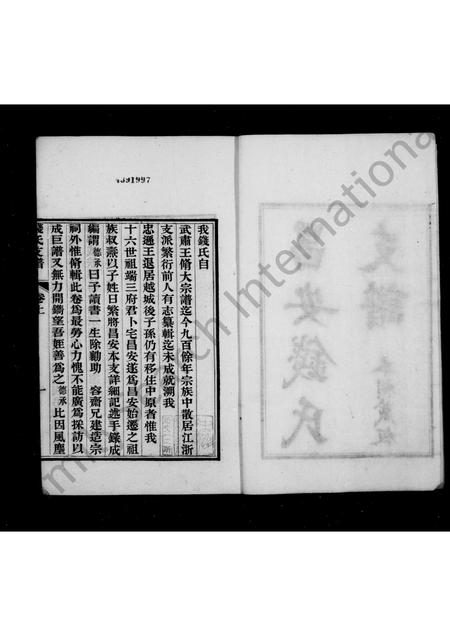 4391997
我錢氏自
武肅王脩大宗譜迄今九百餘年宗族中散居江浙
支派繁衍前人有志纂輯迄未成就溯我
忠遜王退居越城後子孫仍有移住中原者惟我
十六世祖端三府君卜宅昌安遂爲昌安始遷之祖
族叔燾以子姓日繁將昌安本支詳細記述手錄成
編謂德承曰予讀書一生除勷助 容齋兄建造宗
祠外惟脩輯此卷爲最勞心力愧不能廣爲採訪以
成巨譜又無力開鐫望吾姪善爲之德承比因風塵
錢氏支譜 卷上 一
昌安錢氏
支譜
International